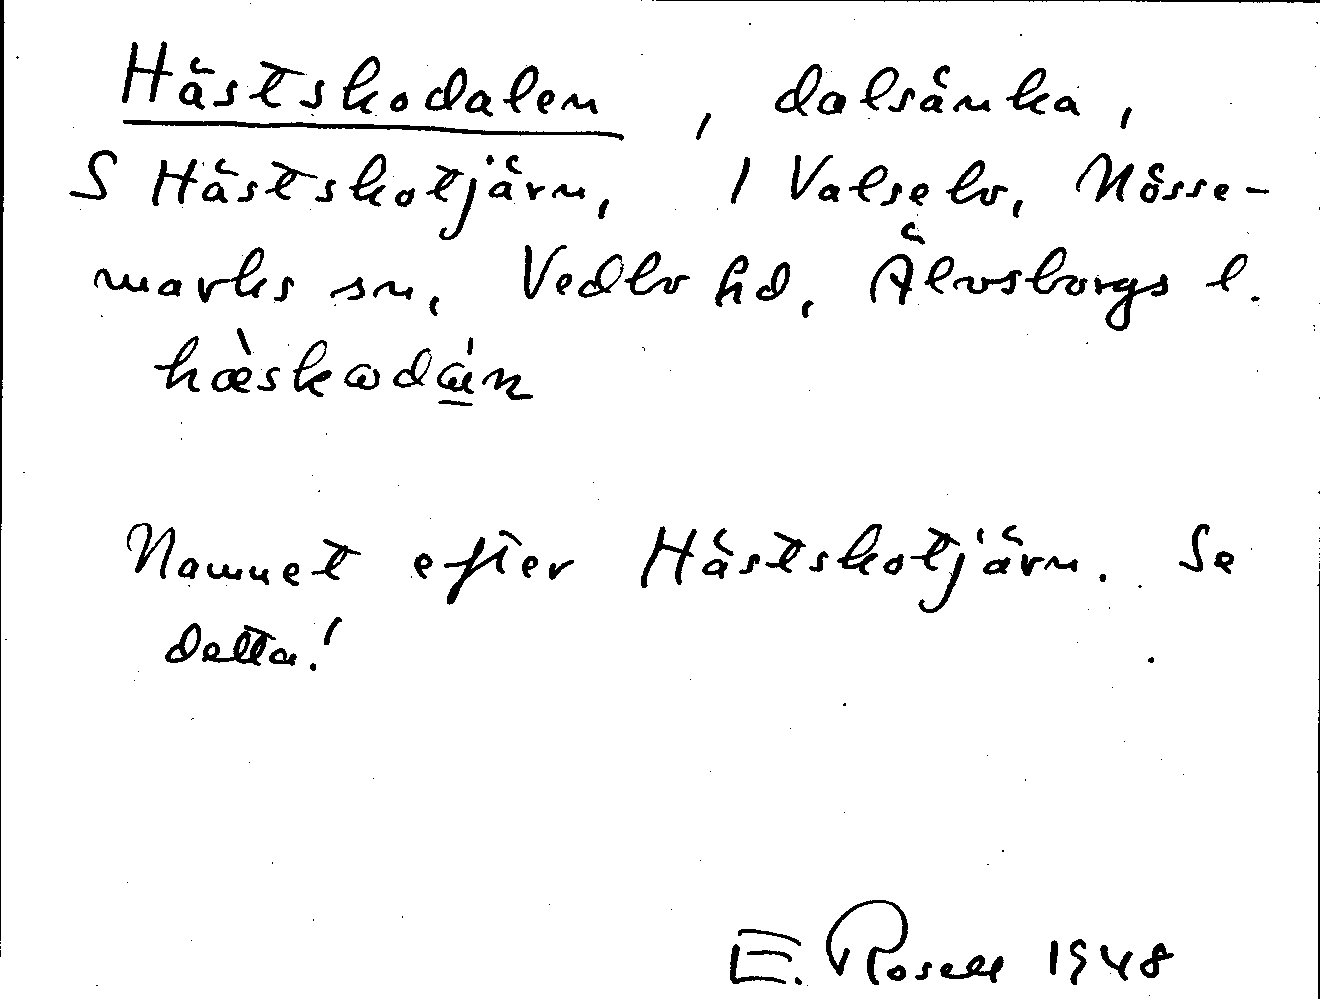 Hästskodalen, dalsänka,
S Hästskotjärn, 1 Valsebo, Nösse-
marks sn, Vedbo hd, Älvsborgs l.
Namnet efter Hästskotjärn. Se
detta!
E. Rosell 1948